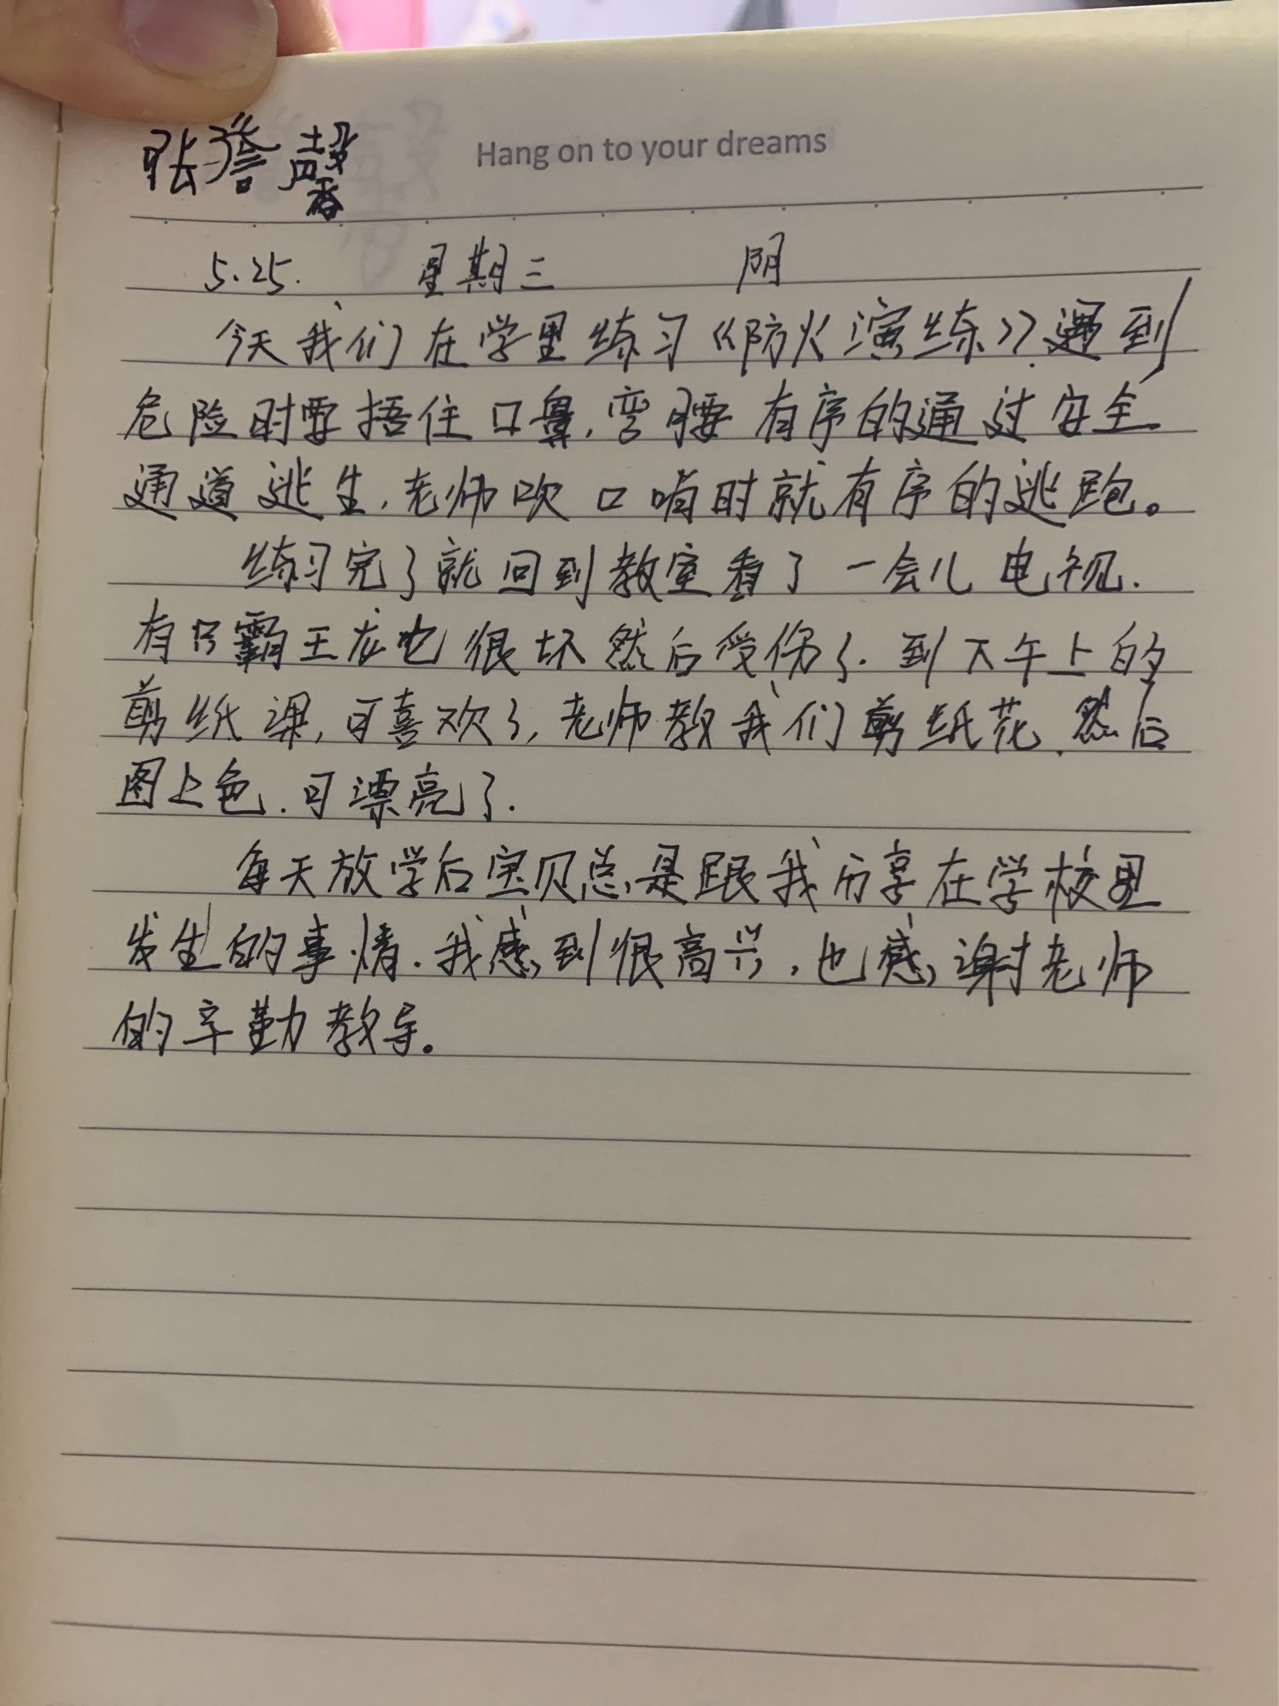 张馨
Hang on to your dreams
5.25. 星期三 阴
今天我们在学里练习《防火演练》遇到
危险时要捂住口鼻,弯腰有序的通过安全
通道逃生,老师吹口哨时就有序的逃跑。
练习完了就回到教室看了一会儿电视.
有只霸王龙它很坏然后受伤了.到下午上的
剪纸课,可喜欢了,老师教我们剪纸花.然后
图上色.可漂亮了.
每天放学后宝贝总是跟我分享在学校里
发生的事情.我感到很高兴,也感谢老师
的辛勤教导。